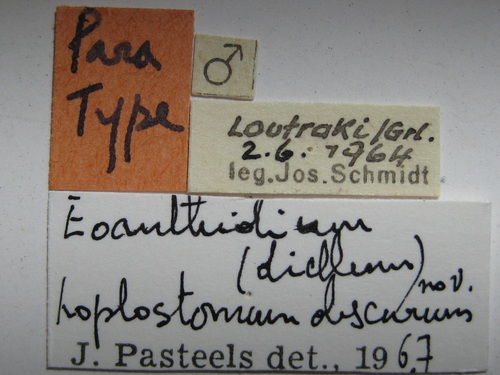 Para
Type
♂
Loutraki/Grl.
2.6. 1964
leg. Jos. Schmidt
Eoanthidium
nov.
hoplostomum
J. Pasteels det., 1967